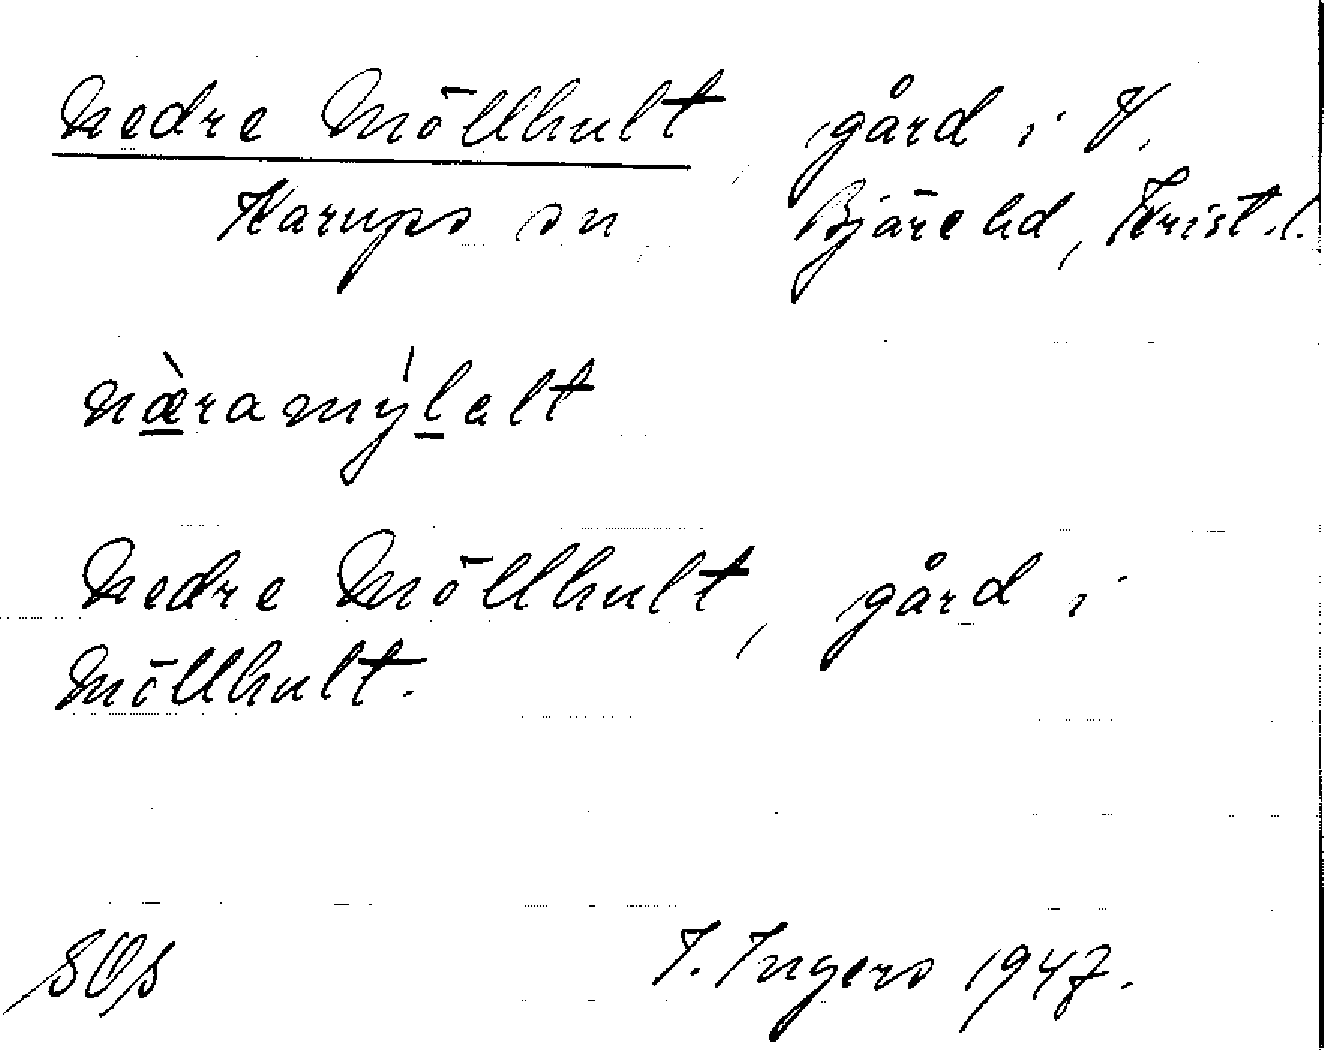 Nedre Möllhult, gård i V.
Karups sn, Bjäre hd, Krist. l.
næ̀ramýlalt
Nedre Möllhult, gård i
Möllhult.
SOS I. Ingers 1947.